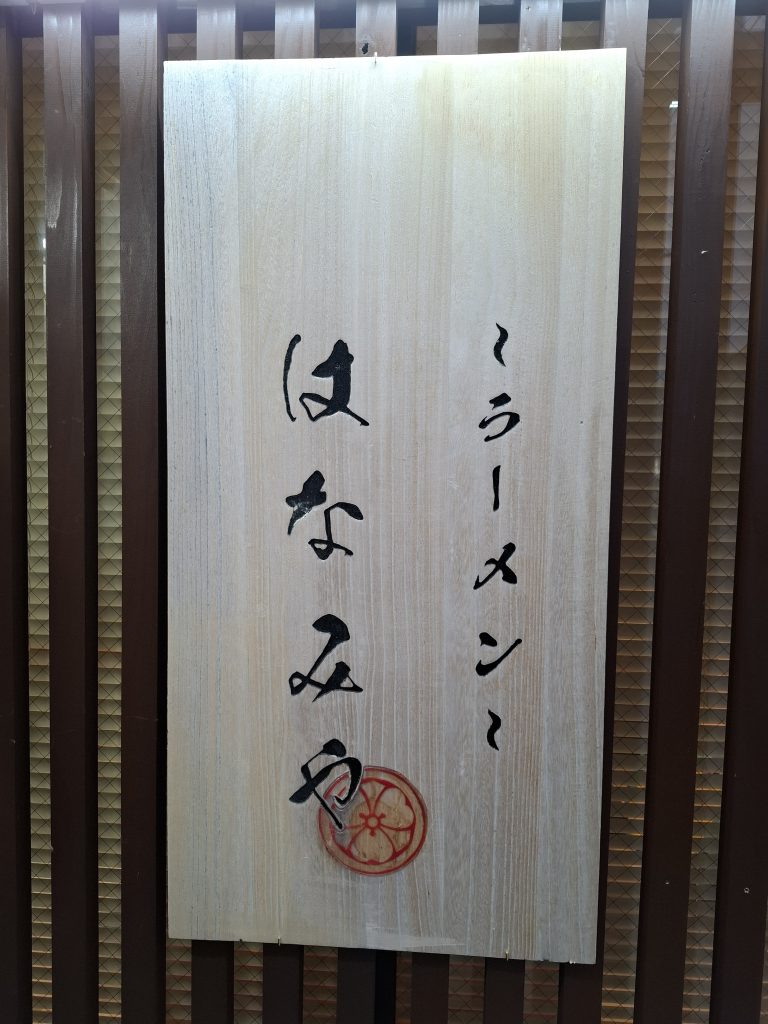 ~ラーメン~
はなみや